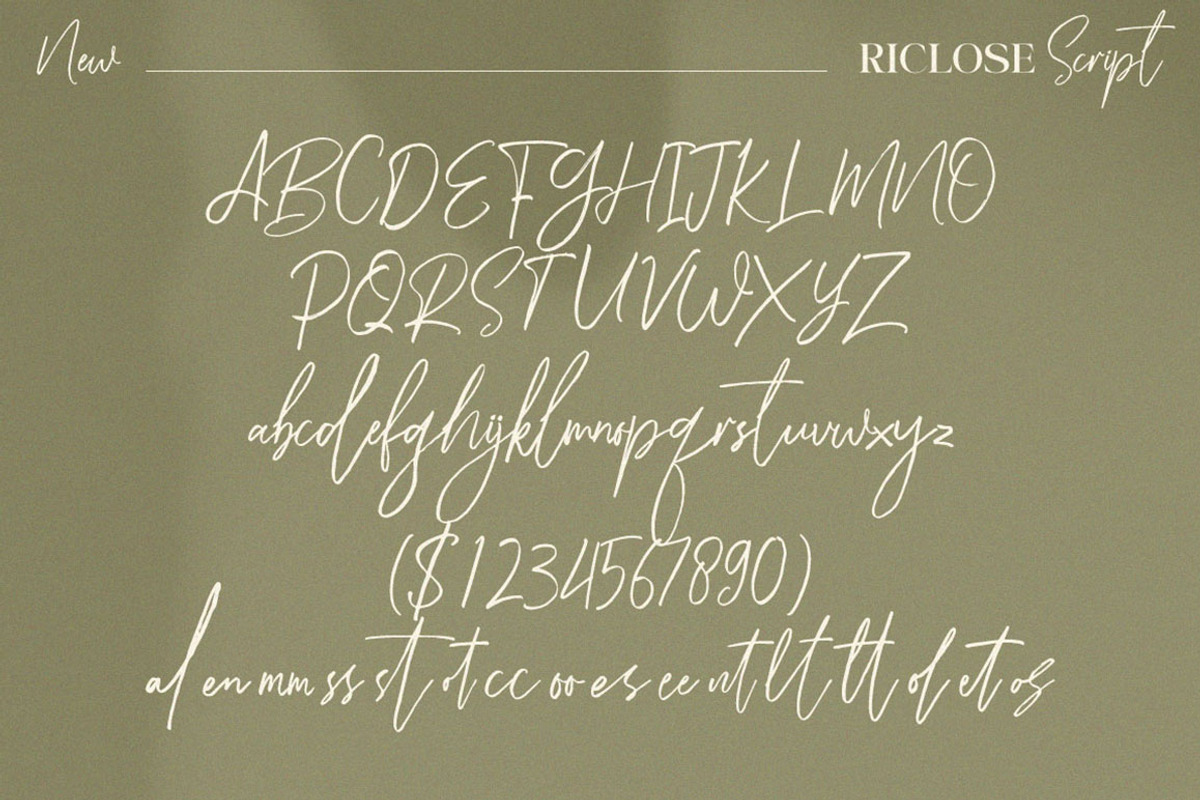 New RICLOSE Script
ABCDEFGHIJKLMNO
PQRSTUVWXYZ
abcdefghijklmnopqrstuvwxyz
($1234567890)
al en mm ss st ot cc oo es ee nt lt tt of et os